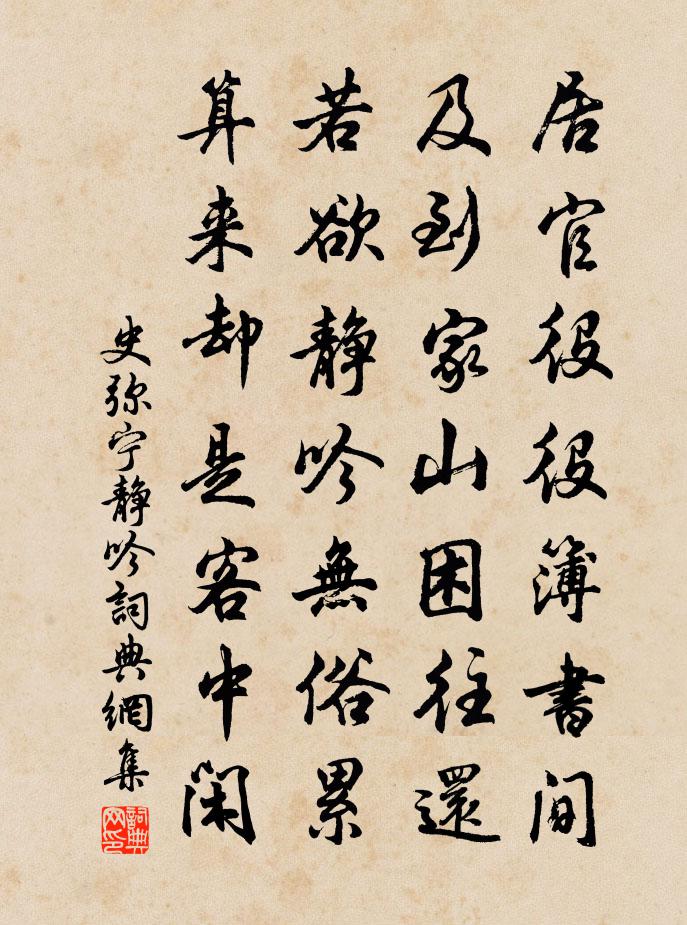 居官役役簿書间
及到家山困往還
若欲静吟無俗累
算来却是客中闲
史弥宁静吟詞典網集
詞典网印